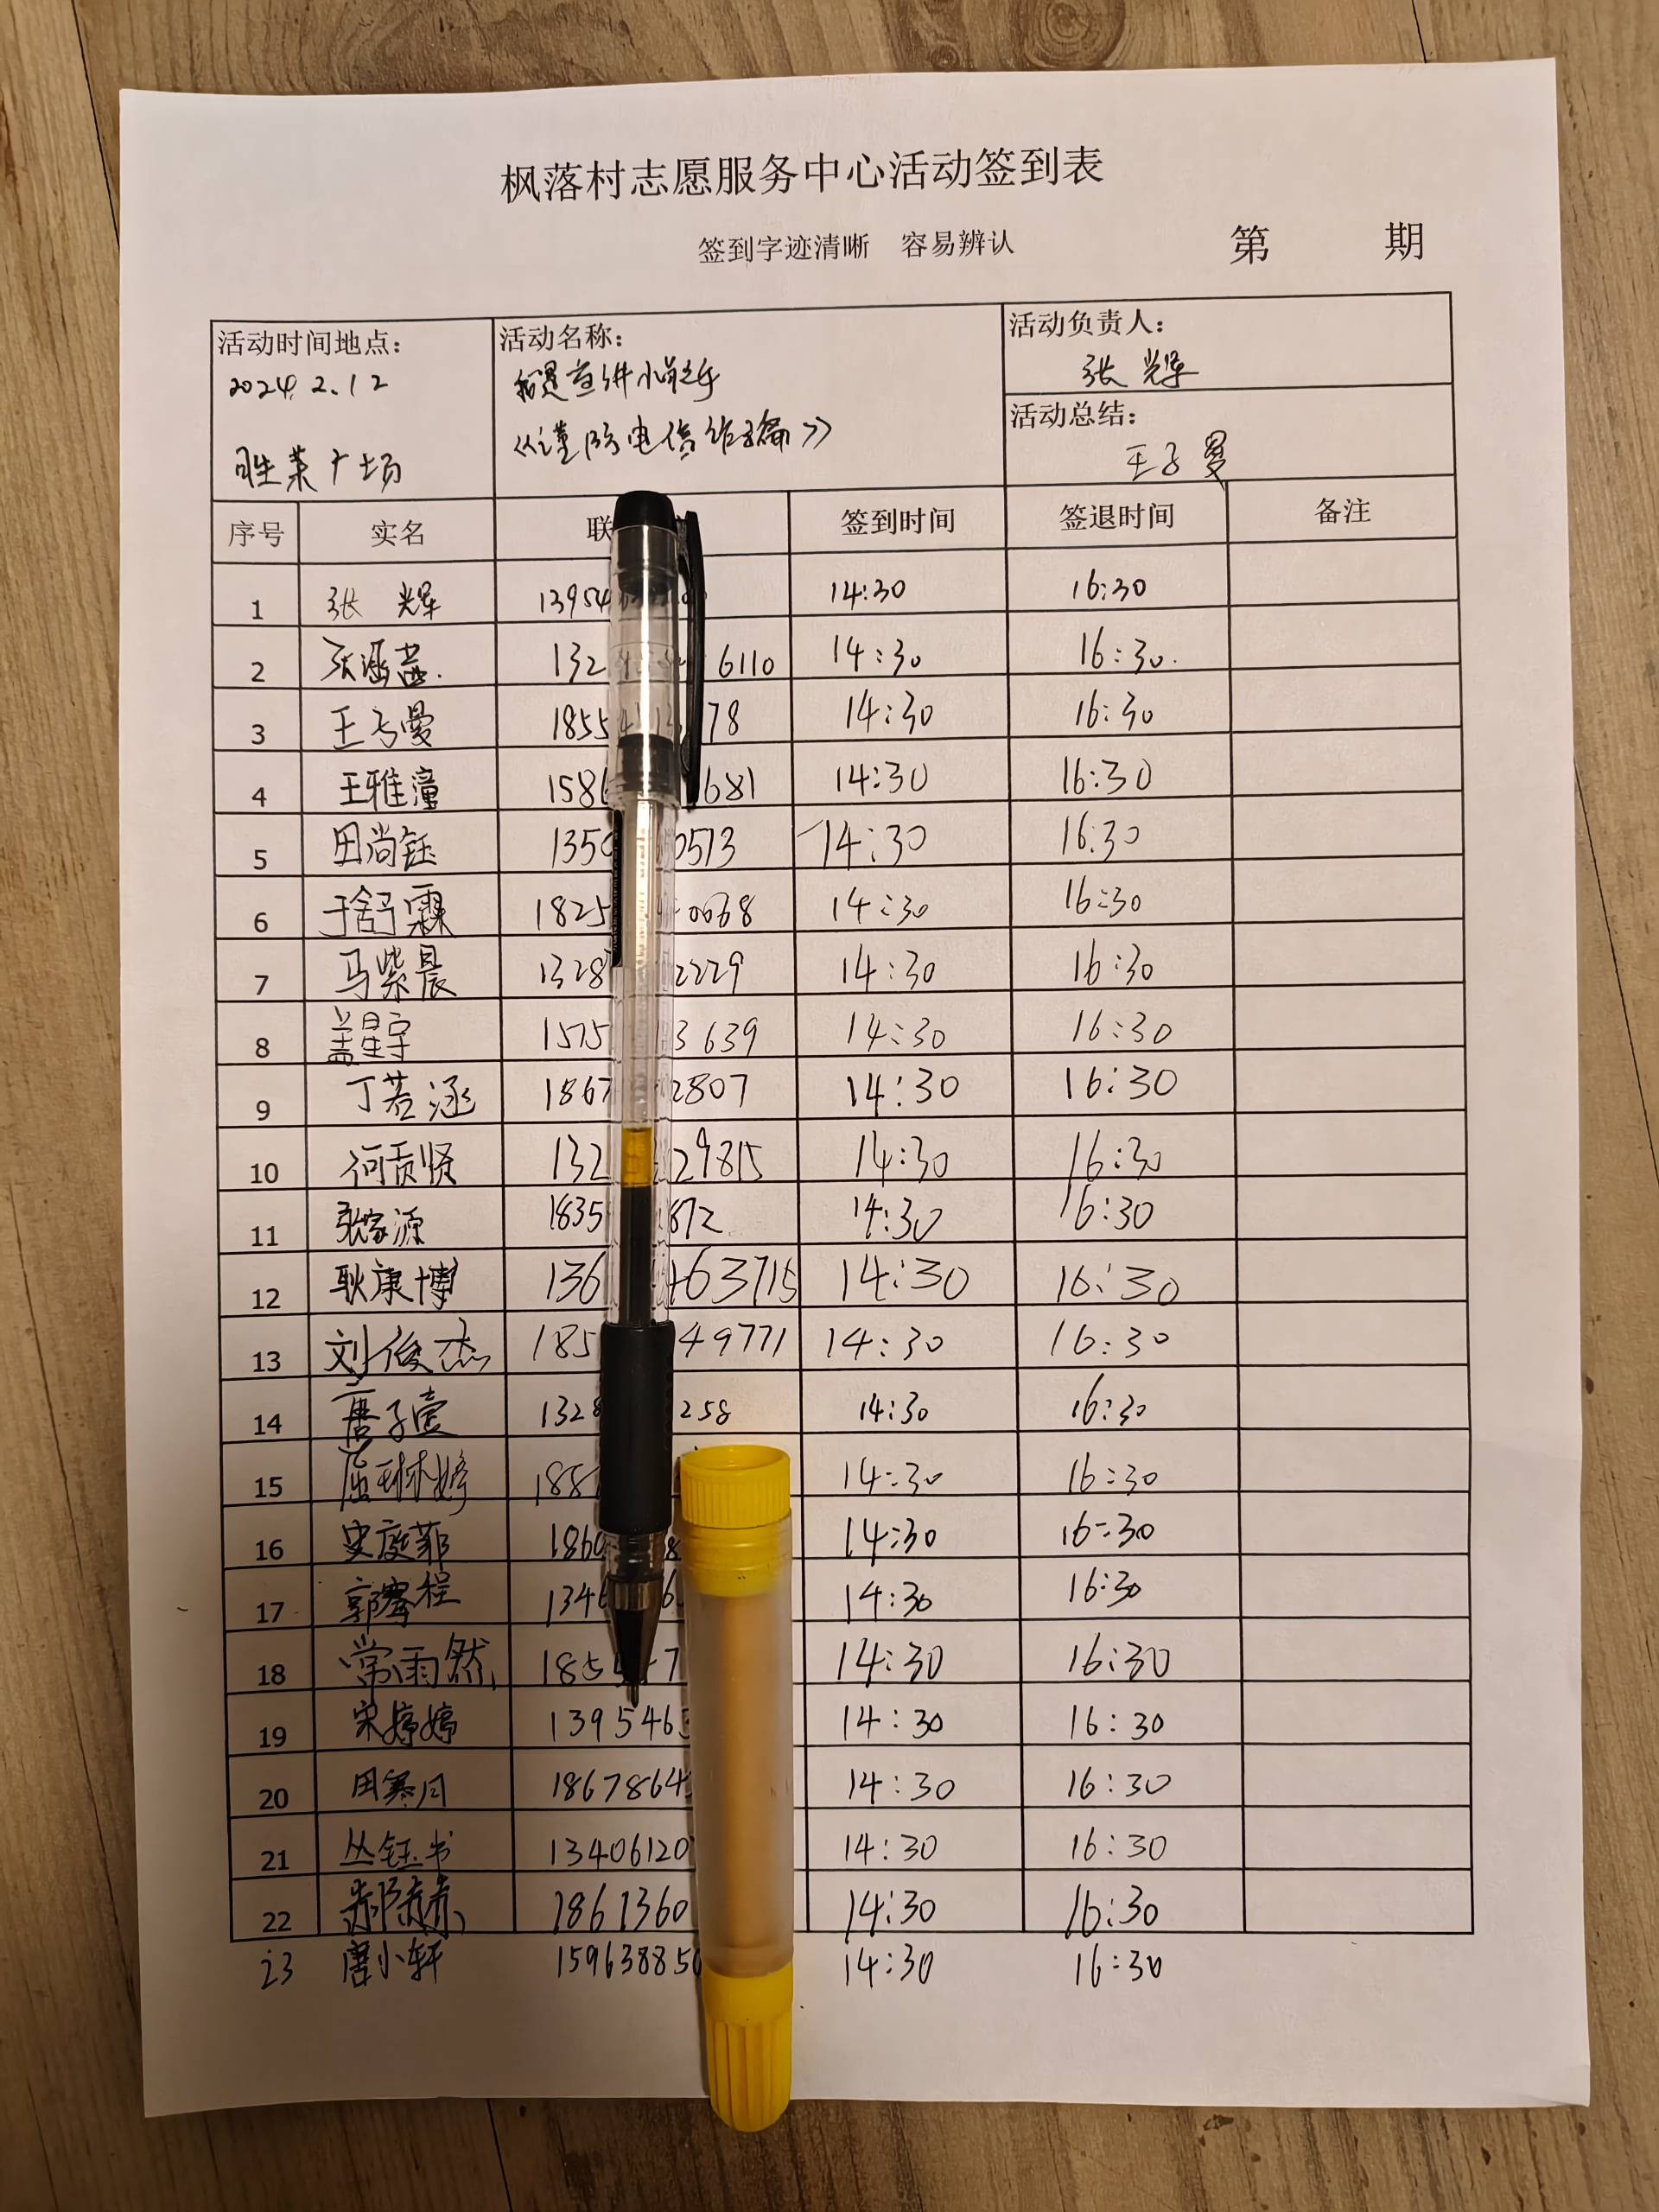 枫落村志愿服务中心活动签到表
签到字迹清晰 容易辨认 第 期
活动时间地点： 活动名称： 活动负责人：
2024.2.12 我是宣讲小能手 张辉
《谨防电信诈骗》 活动总结：
胜莱广场 王子曼
序号 实名 联 签到时间 签退时间 备注
1 张辉 13954 14:30 16:30
2 张涵益 132 6110 14:30 16:30
3 王子曼 1855 78 14:30 16:30
4 王雅潼 1586 1681 14:30 16:30
5 田尚钰 1350 0513 14:30 16:30
6 于舒霖 1825 0068 14:30 16:30
7 马紫晨 1328 2229 14:30 16:30
8 盖星宇 1575 3639 14:30 16:30
9 丁若涵 1867 2807 14:30 16:30
10 何贡贤 132 29815 14:30 16:30
11 张家源 1835 872 14:30 16:30
12 耿康博 136 463715 14:30 16:30
13 刘俊杰 185 49771 14:30 16:30
14 唐子壹 1328 258 14:30 16:30
15 屈琳婷 188 14:30 16:30
16 史庭菲 1860 14:30 16:30
17 郭骞程 1346 14:30 16:30
18 常雨然 185 7 14:30 16:30
19 宋婷婷 1395463 14:30 16:30
20 田寒月 1867864 14:30 16:30
21 丛钰书 13406120 14:30 16:30
22 郝赫赫 1861360 14:30 16:30
23 唐小轩 159638850 14:30 16:30